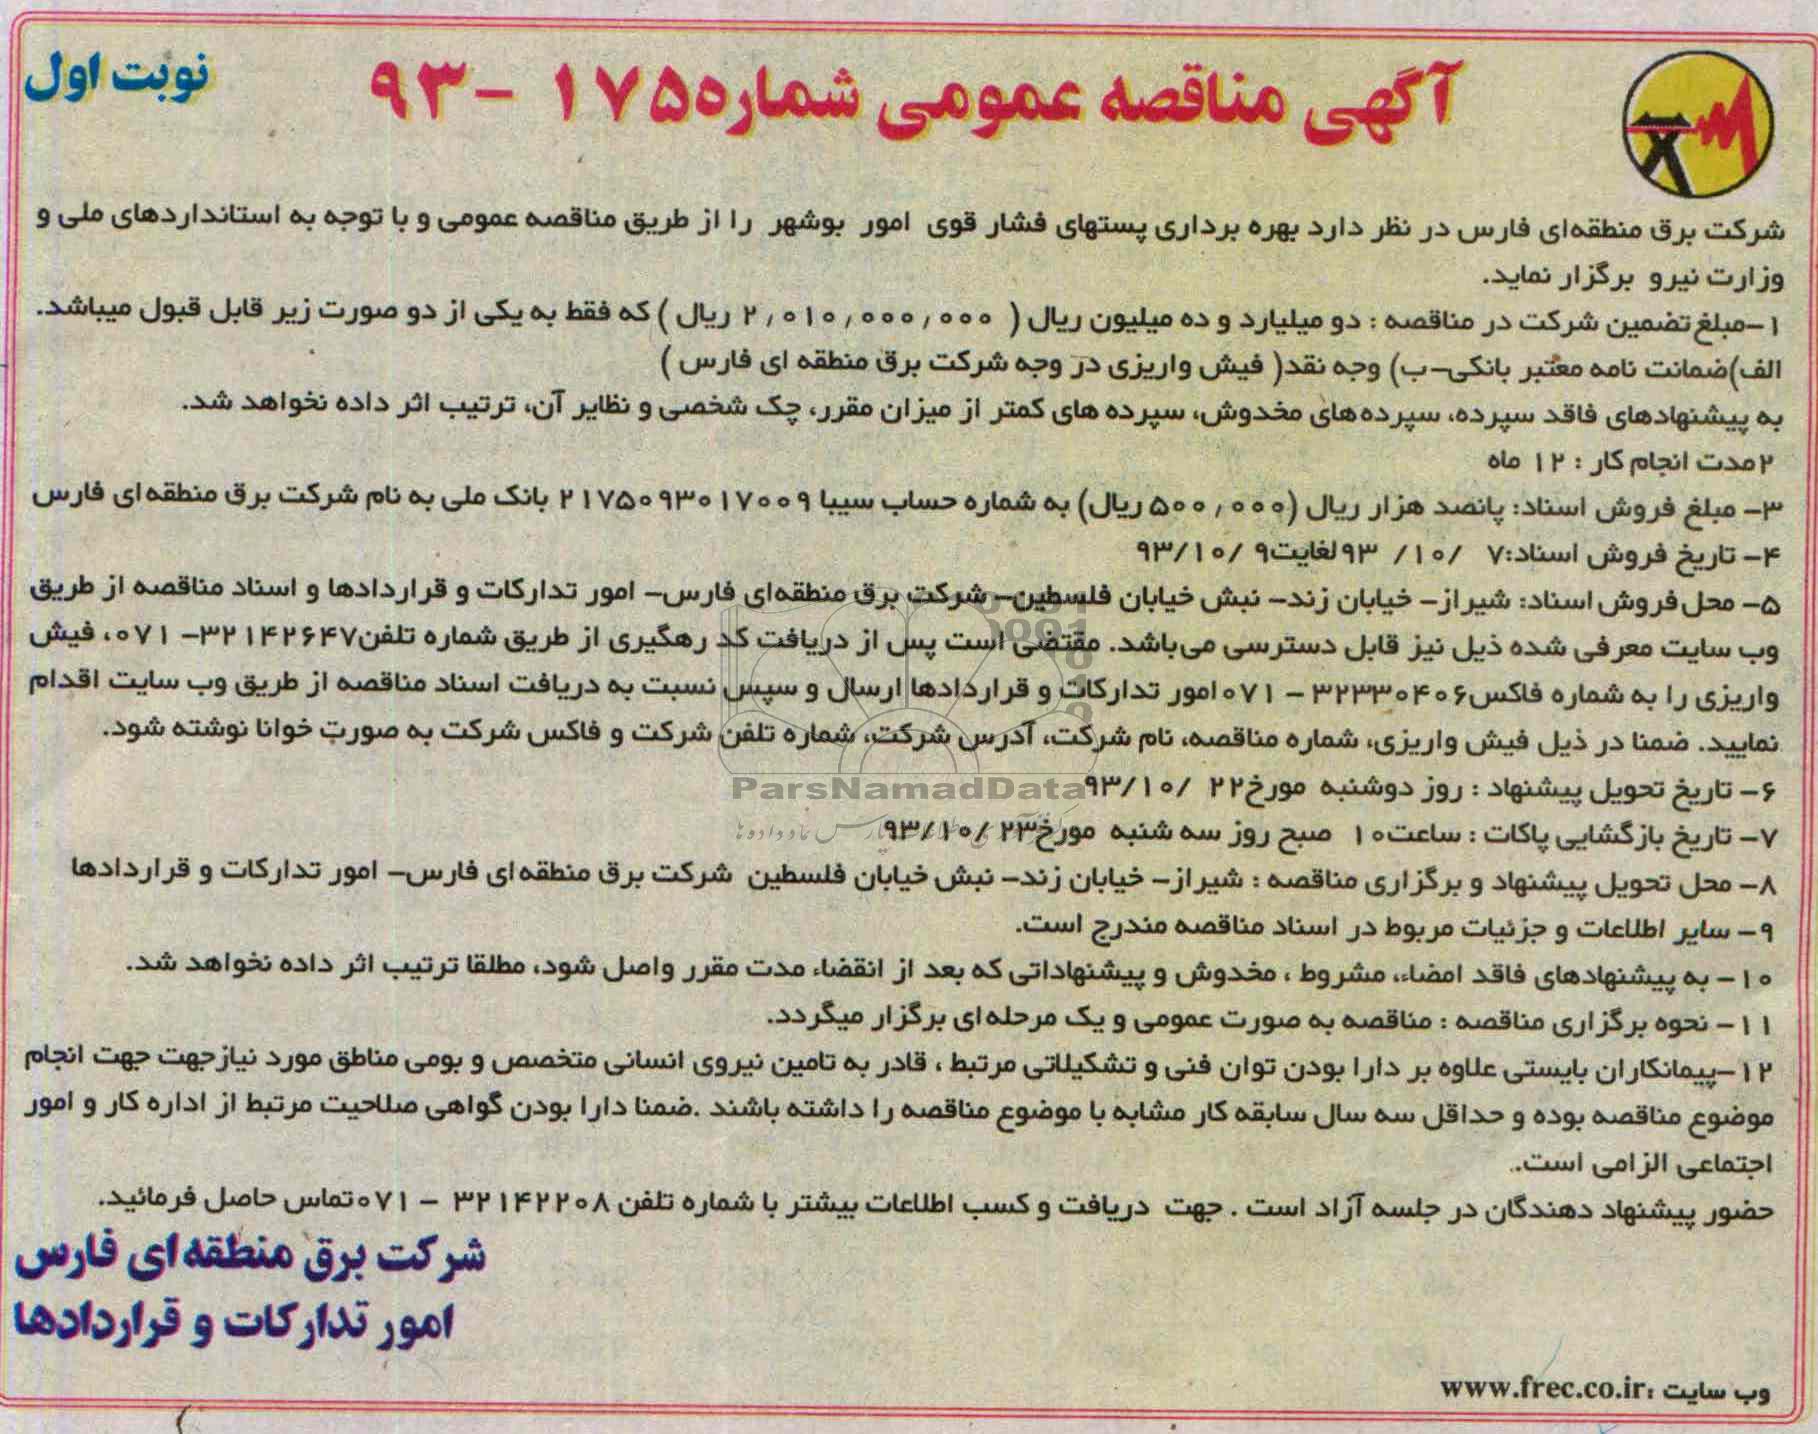 آگهی مناقصه عمومی شماره۱۷۵ -۹۳
نوبت اول
شرکت برق منطقه‌ای فارس در نظر دارد بهره برداری پستهای فشار قوی امور بوشهر را از طریق مناقصه عمومی و با توجه به استانداردهای ملی و
وزارت نیرو برگزار نماید.
۱-مبلغ تضمین شرکت در مناقصه : دو میلیارد و ده میلیون ریال ( ۲,۰۱۰,۰۰۰,۰۰۰ ریال ) که فقط به یکی از دو صورت زیر قابل قبول میباشد.
الف)ضمانت نامه معتبر بانکی-ب) وجه نقد( فیش واریزی در وجه شرکت برق منطقه ای فارس )
به پیشنهادهای فاقد سپرده، سپرده‌های مخدوش، سپرده های کمتر از میزان مقرر، چک شخصی و نظایر آن، ترتیب اثر داده نخواهد شد.
۲مدت انجام کار : ۱۲ ماه
۳- مبلغ فروش اسناد: پانصد هزار ریال (۵۰۰,۰۰۰ریال) به شماره حساب سیبا ۲۱۷۵۰۹۳۰۱۷۰۰۹ بانک ملی به نام شرکت برق منطقه‌ای فارس
۴- تاریخ فروش اسناد:۷ /۱۰/ ۹۳لغایت۹ /۹۳/۱۰
۵- محل فروش اسناد: شیراز- خیابان زند- نبش خیابان فلسطین- شرکت برق منطقه‌ای فارس- امور تدارکات و قراردادها و اسناد مناقصه از طریق
وب سایت معرفی شده ذیل نیز قابل دسترسی می‌باشد. مقتضی است پس از دریافت کد رهگیری از طریق شماره تلفن۳۲۱۴۲۶۴۷- ۰۷۱، فیش
واریزی را به شماره فاکس۳۲۳۳۰۴۰۶ - ۰۷۱امور تدارکات و قراردادها ارسال و سپس نسبت به دریافت اسناد مناقصه از طریق وب سایت اقدام
نمایید. ضمنا در ذیل فیش واریزی، شماره مناقصه، نام شرکت، آدرس شرکت، شماره تلفن شرکت و فاکس شرکت به صورت خوانا نوشته شود.
۶- تاریخ تحویل پیشنهاد : روز دوشنبه مورخ۲۲ /۹۳/۱۰
ParsNamadData
۷- تاریخ بازگشایی پاکات : ساعت۱۰ صبح روز سه شنبه مورخ۲۳ /۹۳/۱۰
۸- محل تحویل پیشنهاد و برگزاری مناقصه : شیراز- خیابان زند- نبش خیابان فلسطین شرکت برق منطقه‌ای فارس- امور تدارکات و قراردادها
۹- سایر اطلاعات و جزئیات مربوط در اسناد مناقصه مندرج است.
۱۰- به پیشنهادهای فاقد امضاء، مشروط ، مخدوش و پیشنهاداتی که بعد از انقضاء مدت مقرر واصل شود، مطلقا ترتیب اثر داده نخواهد شد.
۱۱- نحوه برگزاری مناقصه : مناقصه به صورت عمومی و یک مرحله‌ای برگزار میگردد.
۱۲-پیمانکاران بایستی علاوه بر دارا بودن توان فنی و تشکیلاتی مرتبط ، قادر به تامین نیروی انسانی متخصص و بومی مناطق مورد نیازجهت جهت انجام
موضوع مناقصه بوده و حداقل سه سال سابقه کار مشابه با موضوع مناقصه را داشته باشند .ضمنا دارا بودن گواهی صلاحیت مرتبط از اداره کار و امور
اجتماعی الزامی است..
حضور پیشنهاد دهندگان در جلسه آزاد است . جهت دریافت و کسب اطلاعات بیشتر با شماره تلفن ۳۲۱۴۲۲۰۸ - ۰۷۱تماس حاصل فرمائید.
شرکت برق منطقه‌ای فارس
امور تدارکات و قراردادها
وب سایت :www.frec.co.ir